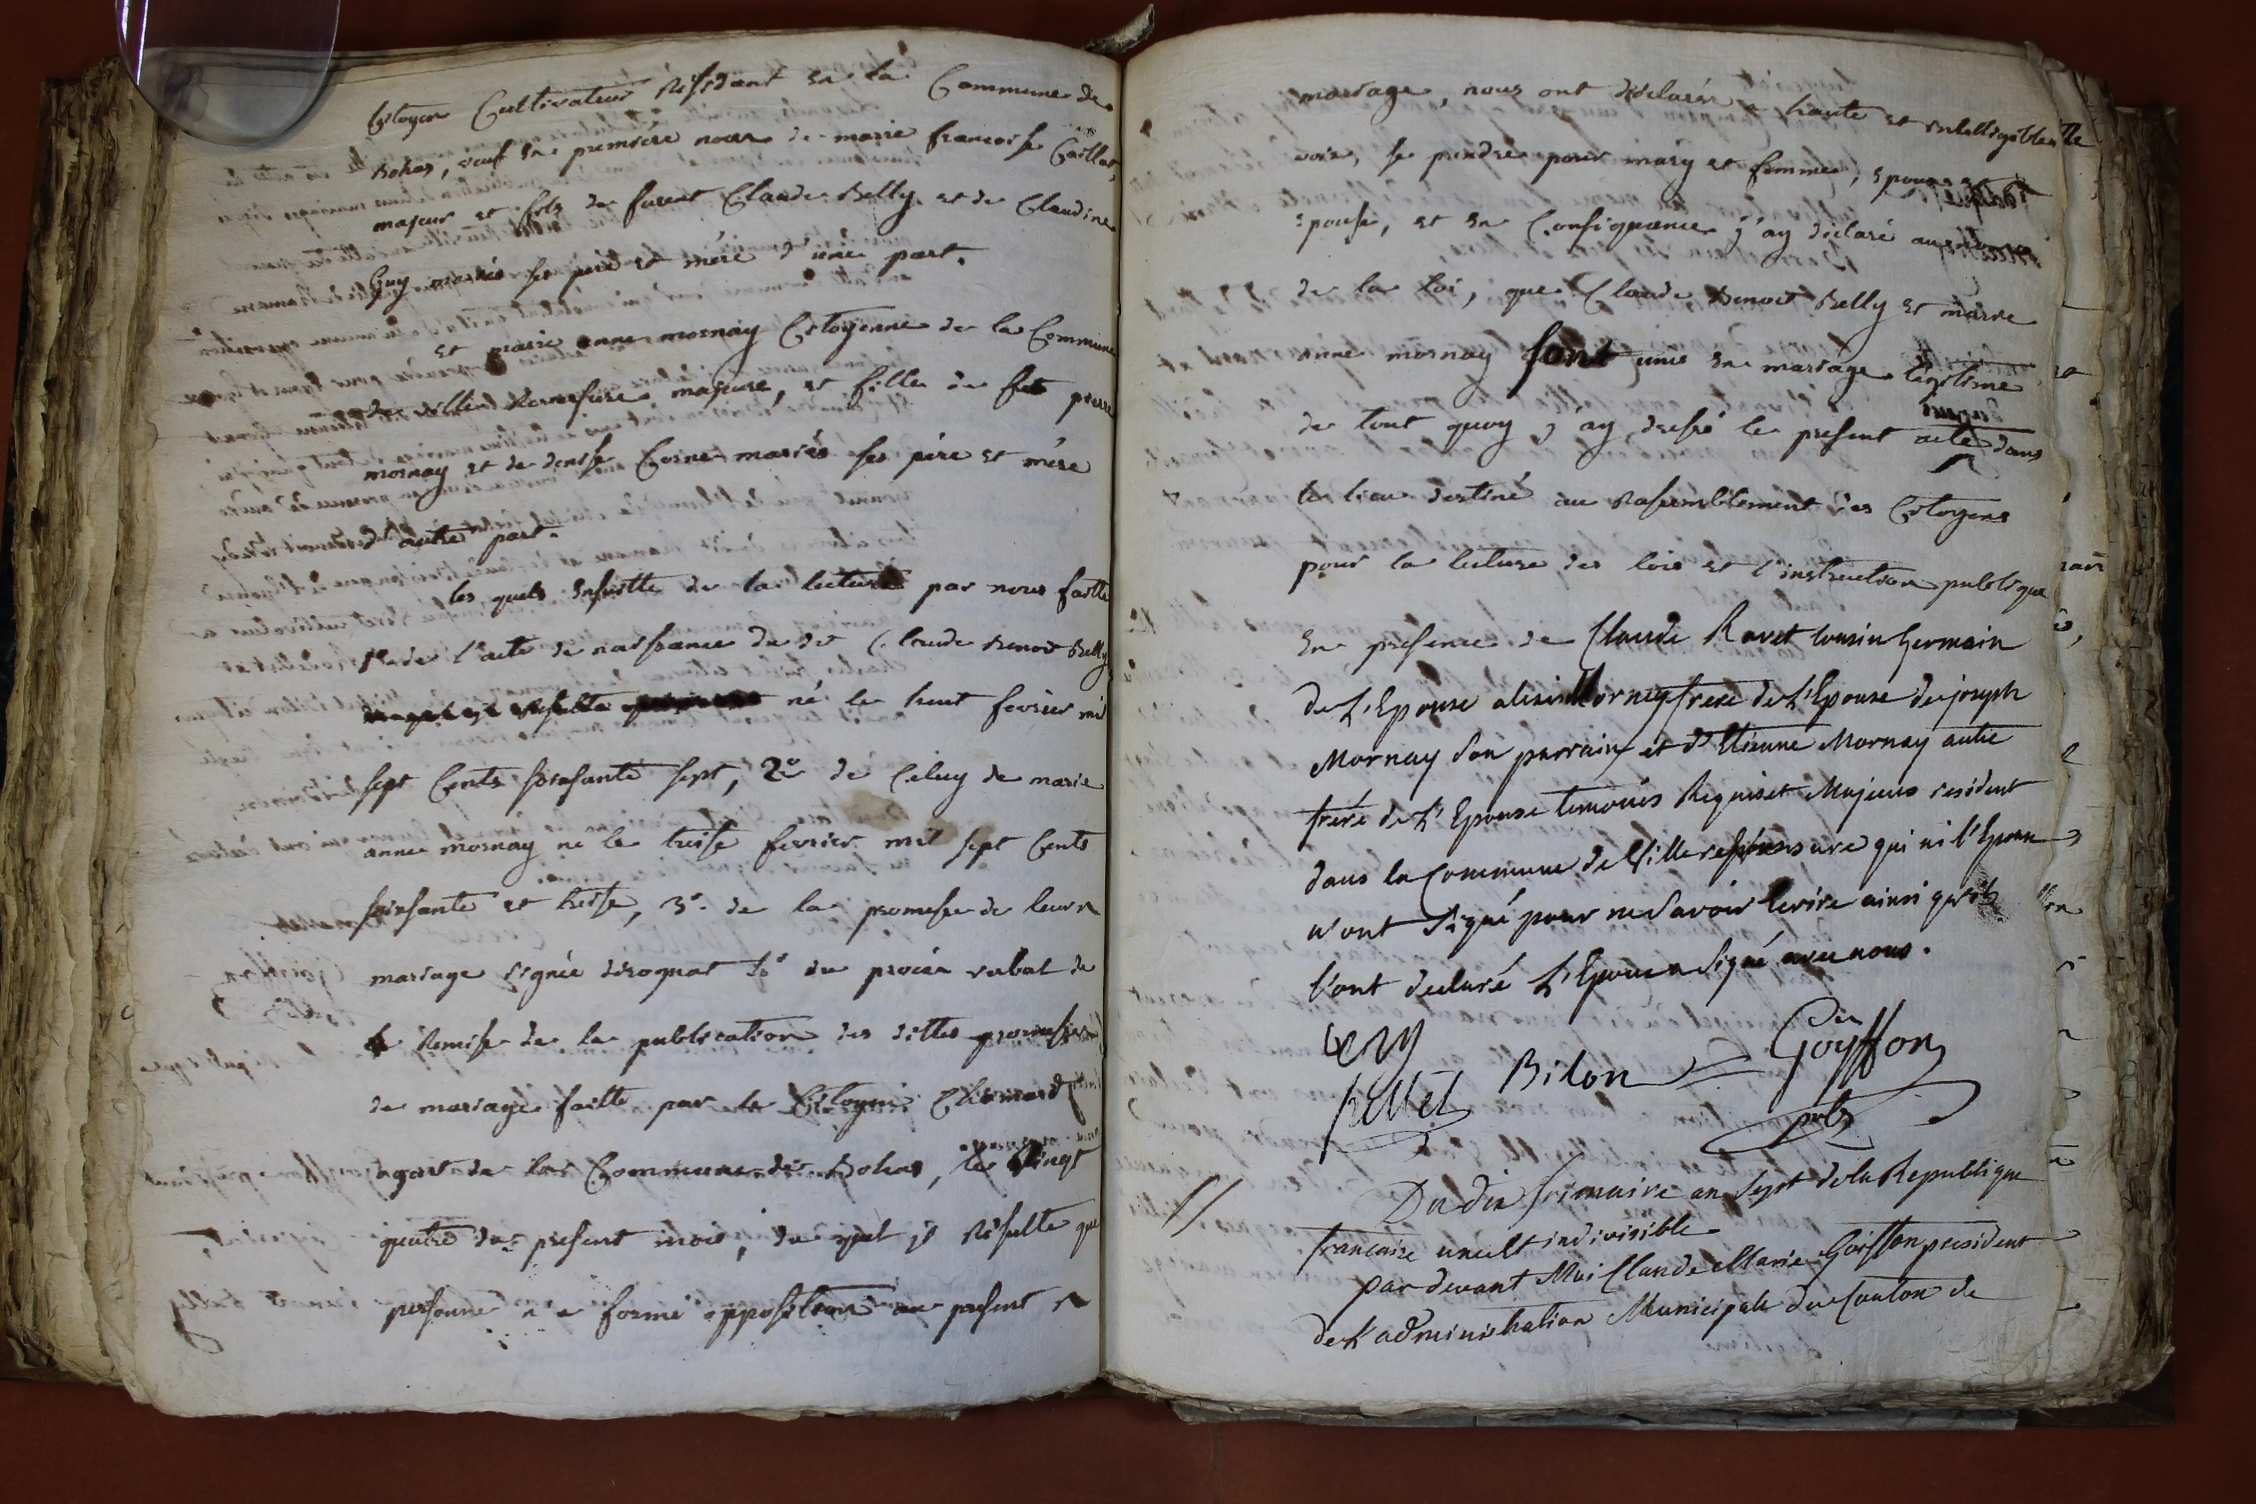 Citoyen Cultivateur Résidant en la Commune de
Bohas, veuf en première noces de marie francoise Gaillat,
majeur et fils de furent Claude Belly et de Claudine
Guy mariés ses père et mére d'une part.
et marie anne mornay Citoyenne de la Commune
de Ville Reversure majeure, et fille de fut pierre
mornay et de denise Corne mariés ses père et mére
d'autre part.
les quels ensuitte de la lecture par nous faitte
de l'acte de naissance du dit Claude Benoit Belly
né le huit fevrier mil
sept Cents soisante sept, 2º de Celuy de marie
anne mornay né le treise fevrier mil sept Cents
soissante et treise, 3º de la promesse de leur
mariage signée 4º du procès verbal de
Remise de la publication des dittes promesses
de mariage faitte par le Citoyen
agent de la Commune de Bohas, le vingt
quatre du présent mois, du quel il Résulte que
personne n'a formé opposition au présent
mariage, nous ont déclarér a haute et intelligible
voix, se prendre pour mary et femme, epoux et
epouse, et en Conséquence j'ay déclaré au nom
de la Loi, que Claude Benoit Belly et marie
anne mornay sont unis en mariage légitime
de tout quoy j'ay dressé le présent acte dans
le lieu destiné au Rassemblement des Citoyens
pour la lecture des lois et l'instruction publique
En présence de Claude Ravet Cousin Germain
de L'Epouse Mornay frere de L'Epouse de joseph
Mornay son parrain et d'Etienne Mornay autre
frére de L'Epouse temoins Requiset Majeurs resident
dans la Commune de Villereversure qui ni l'Epoux
n'ont signé pour ne savoir Ecrire ainsi qu'ils
l'ont declaré L'Epoux a signé avec nous.
Goyffon
Bilon
pellet
Du dix frimaire an Sept de la Republique
francaise une et indivisible
par devant Moi Claude Marie Goiffon president
de L'administration Municipale du Canton de